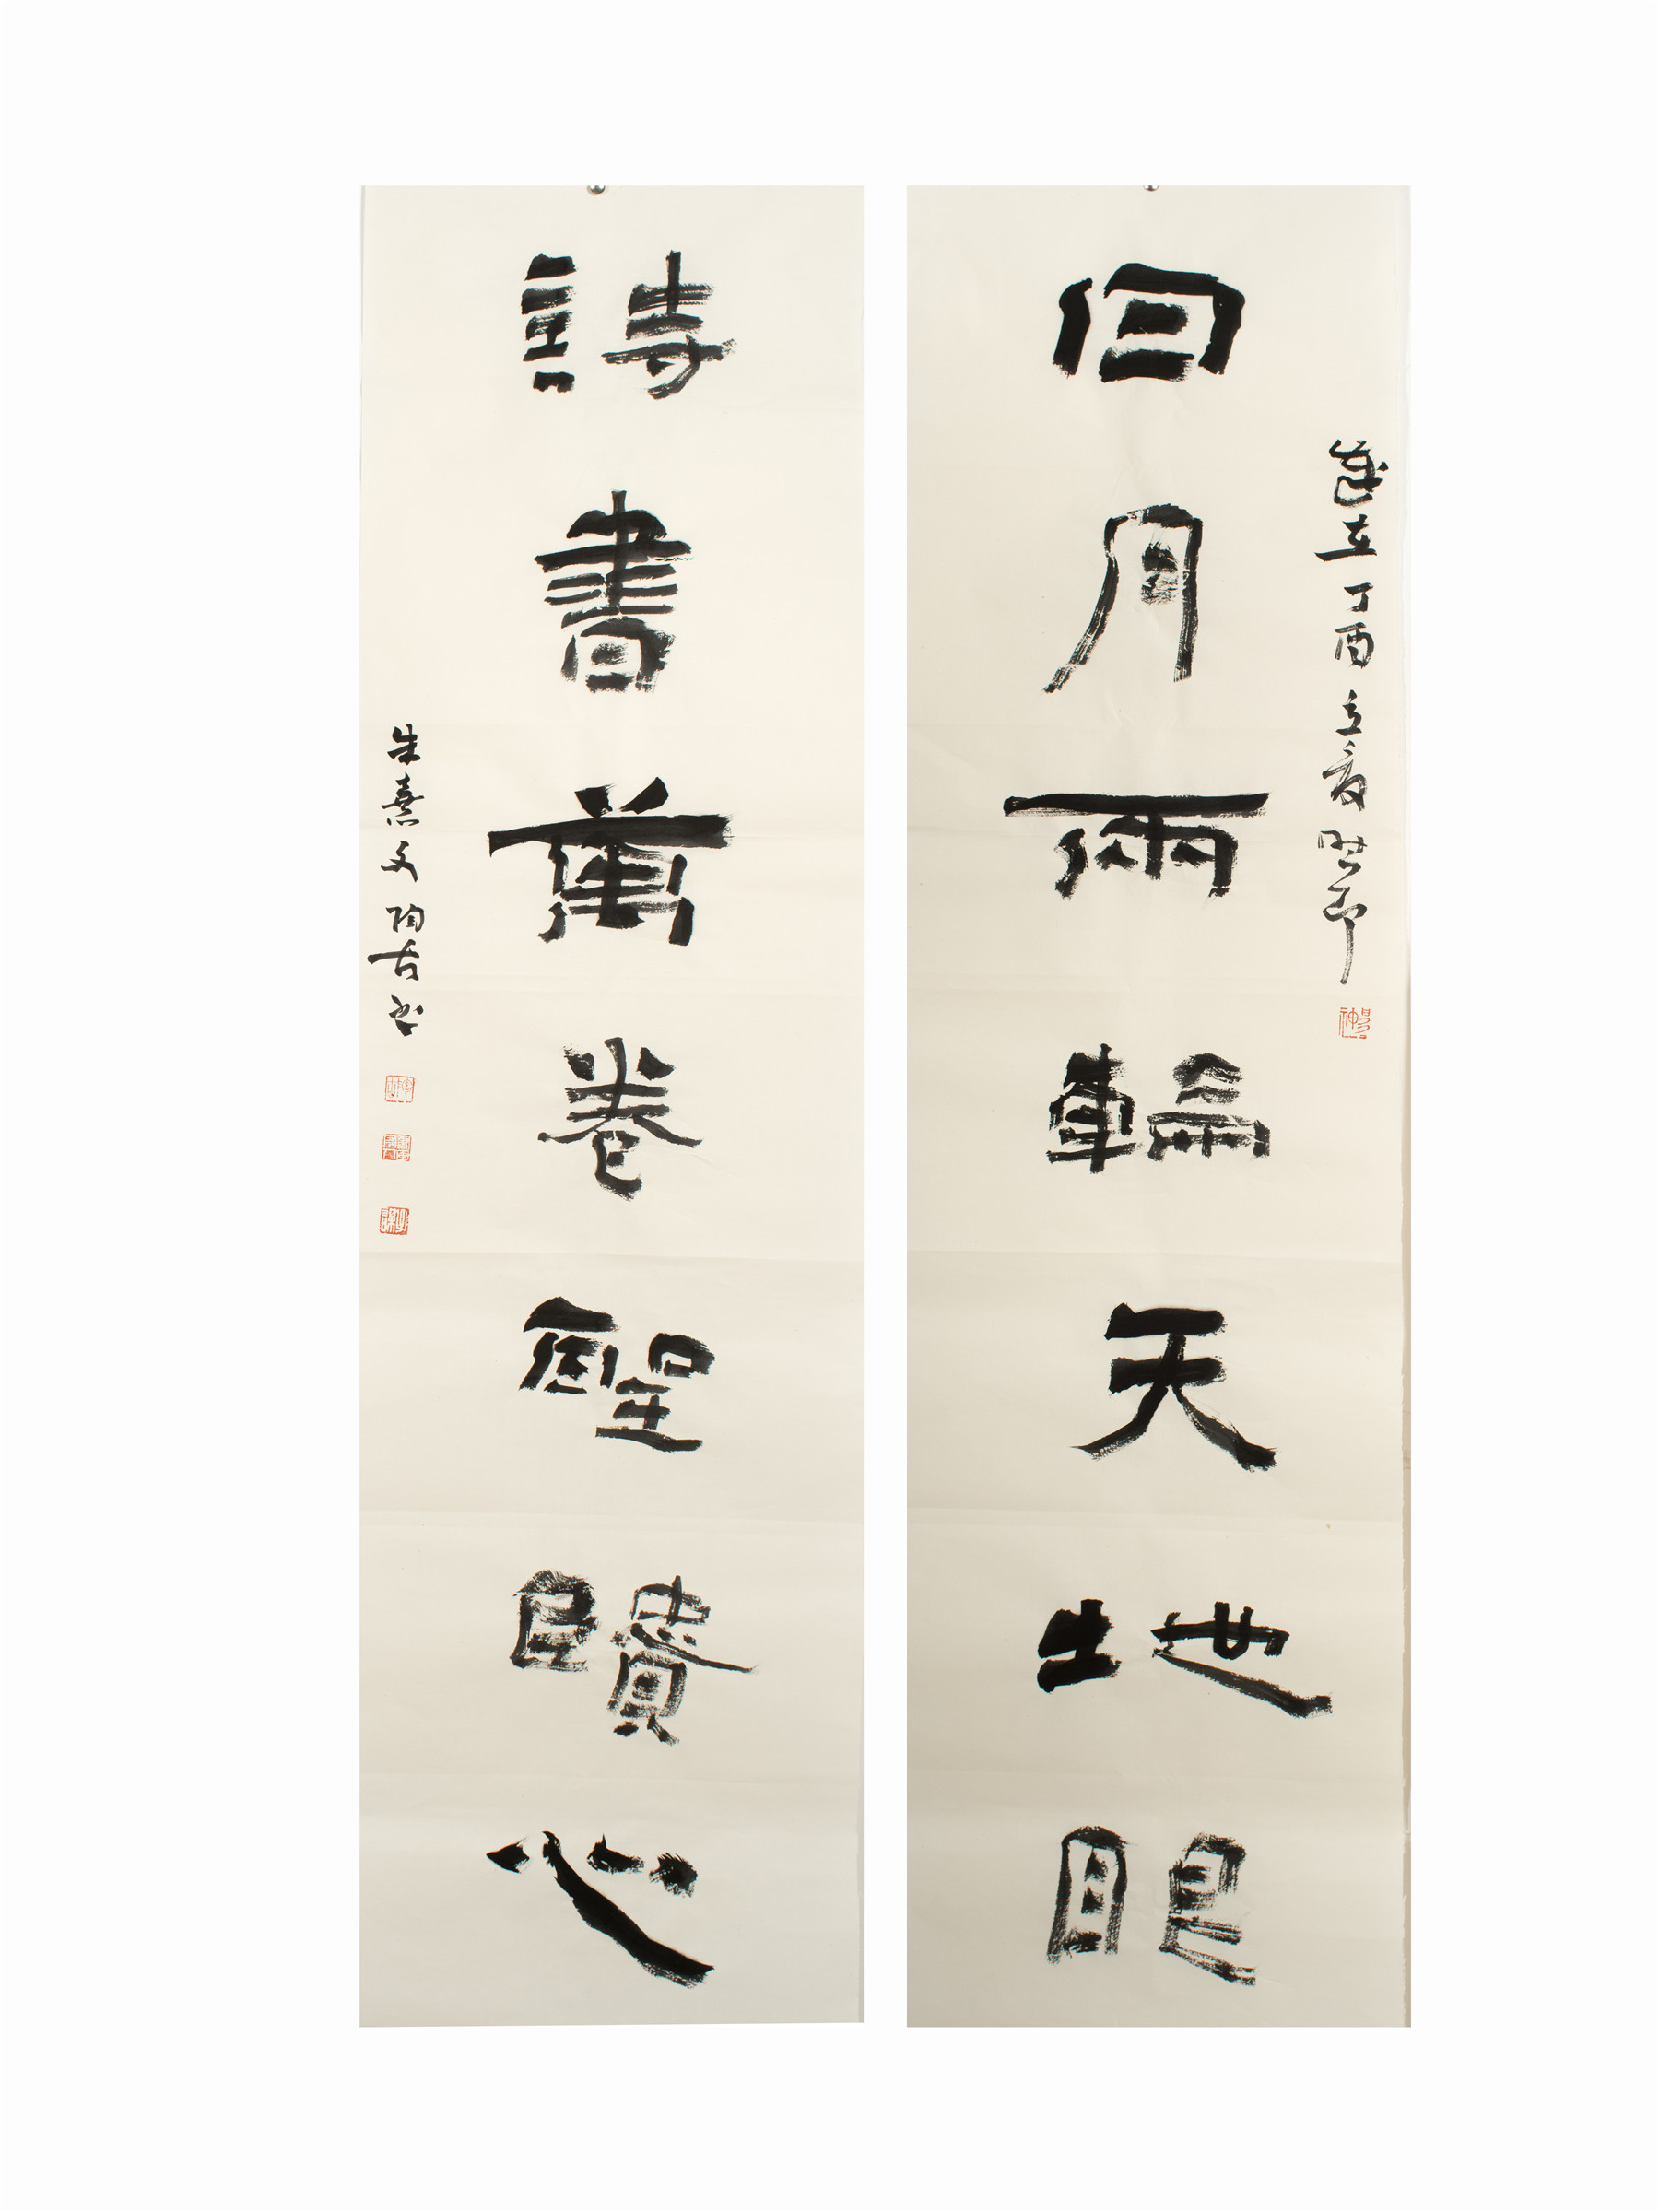 日月兩輪天地眼
歲在丁酉立夏
詩書萬卷聖賢心
朱熹文陶古書